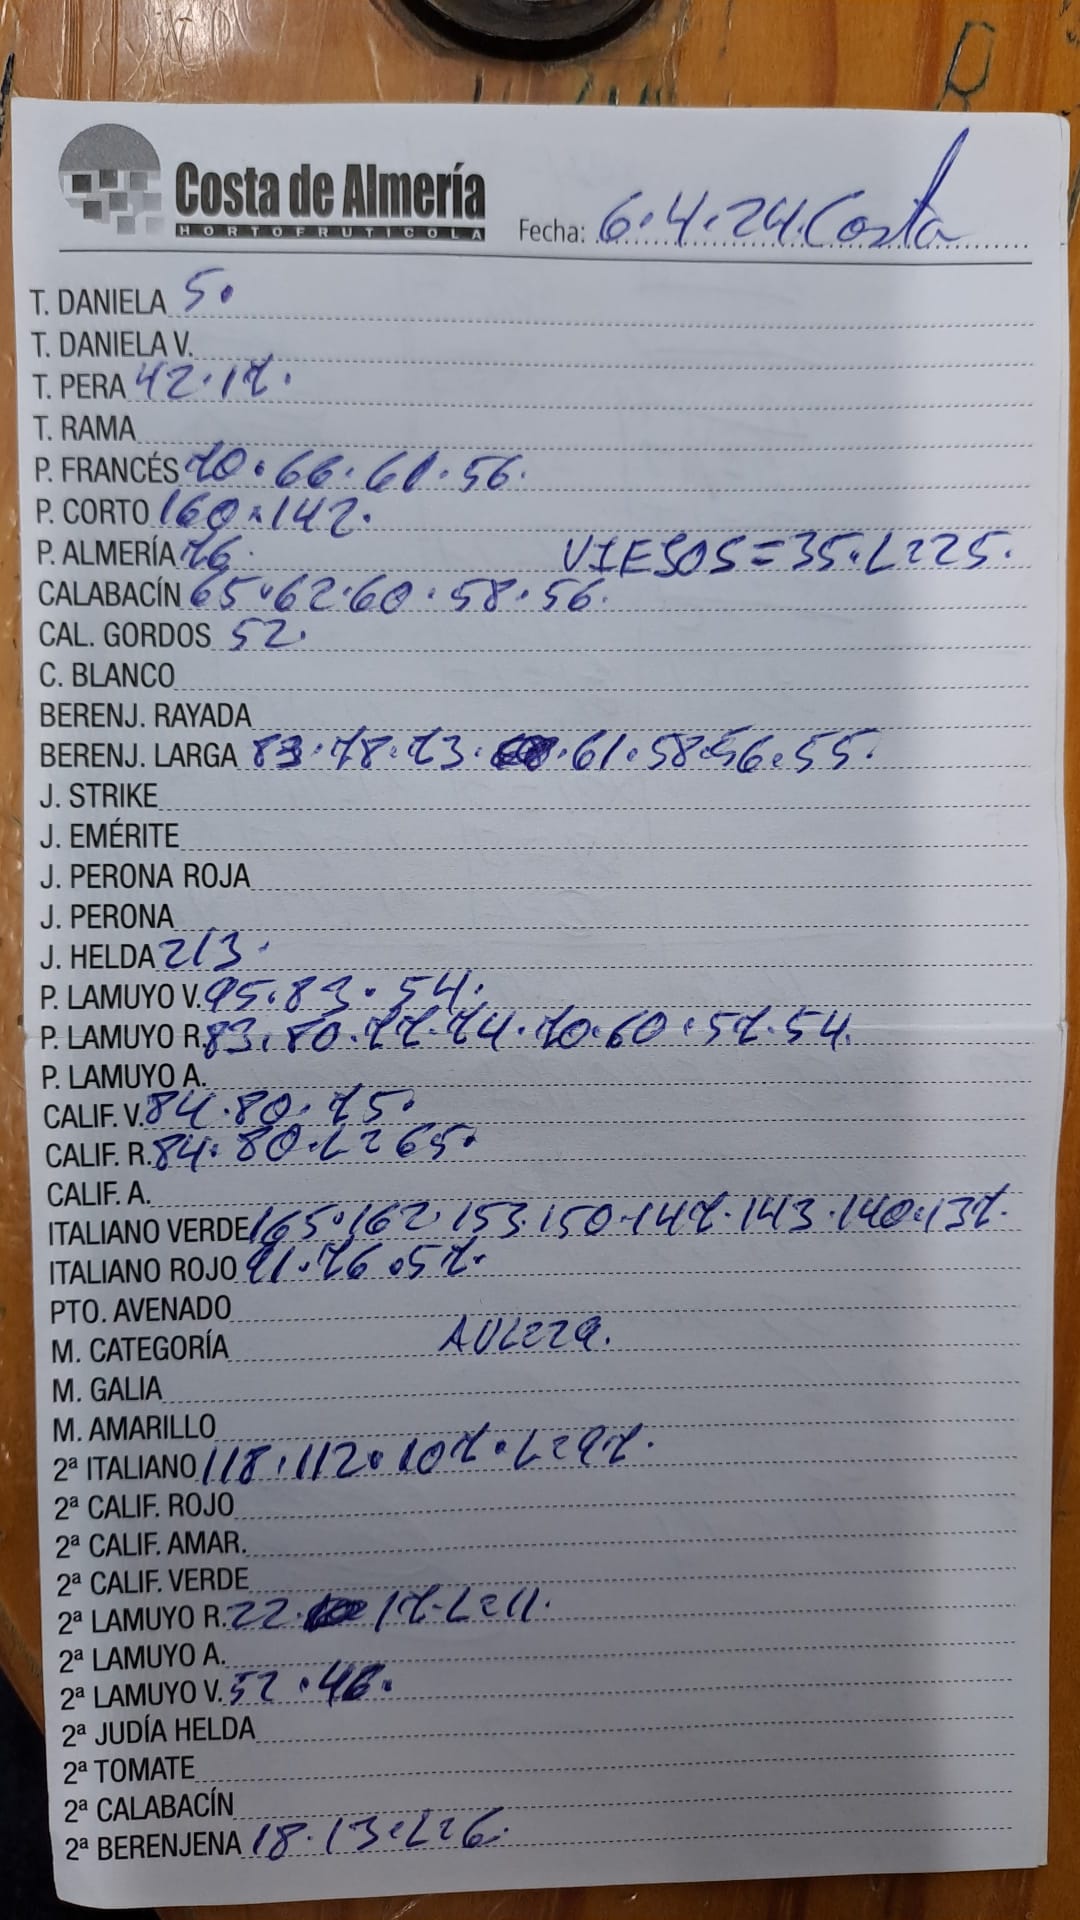 Costa de Almería
HORTOFRUTICOLA
Fecha: 6.4.24. Costa
T. DANIELA 5.
T. DANIELA V.
T. PERA 42.17.
T. RAMA
P. FRANCÉS 70.66.61.56.
P. CORTO 160.142.
P. ALMERÍA 76. VIESOS=35.L=25.
CALABACÍN 65.62.60.58.56.
CAL. GORDOS 52.
C. BLANCO
BERENJ. RAYADA
BERENJ. LARGA 83.78.73. .61.58.56.55.
J. STRIKE
J. EMÉRITE
J. PERONA ROJA
J. PERONA
J. HELDA 213.
P. LAMUYO V. 95.83.54.
P. LAMUYO R. 83.80.77.74.70.60.57.54.
P. LAMUYO A.
CALIF. V. 84.80.75.
CALIF. R. 84.80.L=65.
CALIF. A.
ITALIANO VERDE 165.162.153.150.147.143.140.137.
ITALIANO ROJO 91.76.57.
PTO. AVENADO
M. CATEGORÍA
M. GALIA
M. AMARILLO
2ª ITALIANO 118.112.107.L=97.
2ª CALIF. ROJO
2ª CALIF. AMAR.
2ª CALIF. VERDE
2ª LAMUYO R. 22. 17.L=11.
2ª LAMUYO A.
2ª LAMUYO V. 52.46.
2ª JUDÍA HELDA
2ª TOMATE
2ª CALABACÍN
2ª BERENJENA 18.13.L=6.